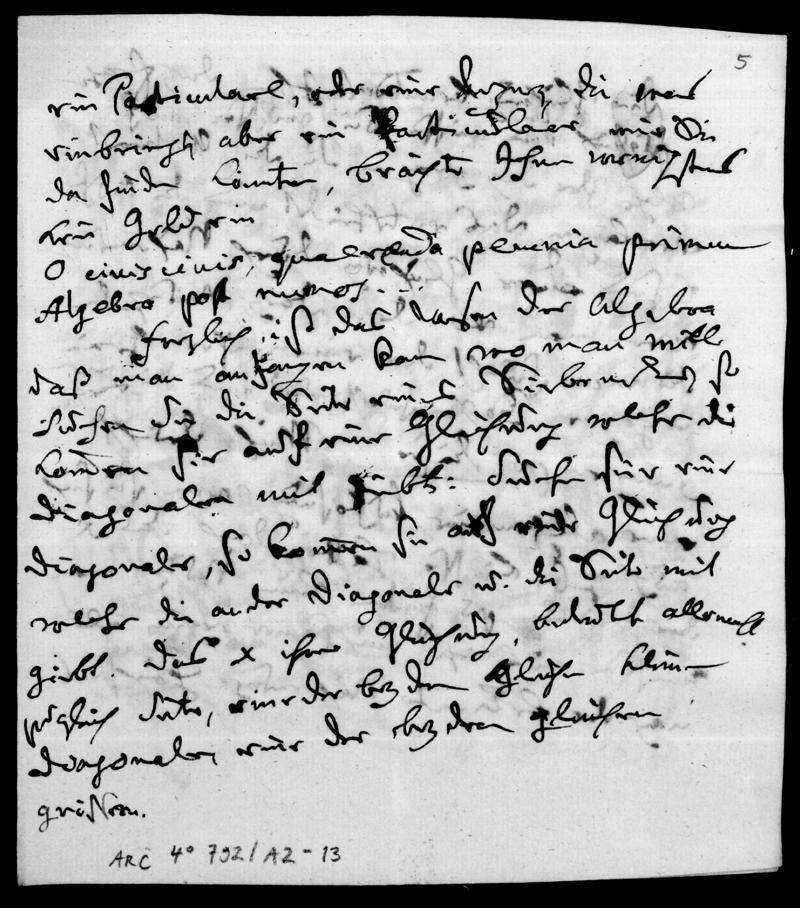 5
ein Particulare, oder eine die was
einbringt, aber ein Particulare wie Sie
da finden könten, brächte Ihnen wenigstens
kein Geld ein
O cives cives, quaerenda pecunia primum
Algebra post numos...
freylich ist das Wesen der Algebra
daß man anfangen kan, wo man will
suchen Sie die Seite eines Siebenecks, so
kommen Sie auf eine Gleichung welche die
Diagonalen mit giebt: Suchen Sie eine
Diagonale, so kommen Sie auf eine Gleichung
welche die andre Diagonale u. die Seite mit
giebt. Das x ihrer Gleichung, bedeutet allemahl
zugleich Seite, eine der beyden gleichen kleinen
Diagonalen, eine der beyden gleichen
größern.
ARC 4° 792/A2-13